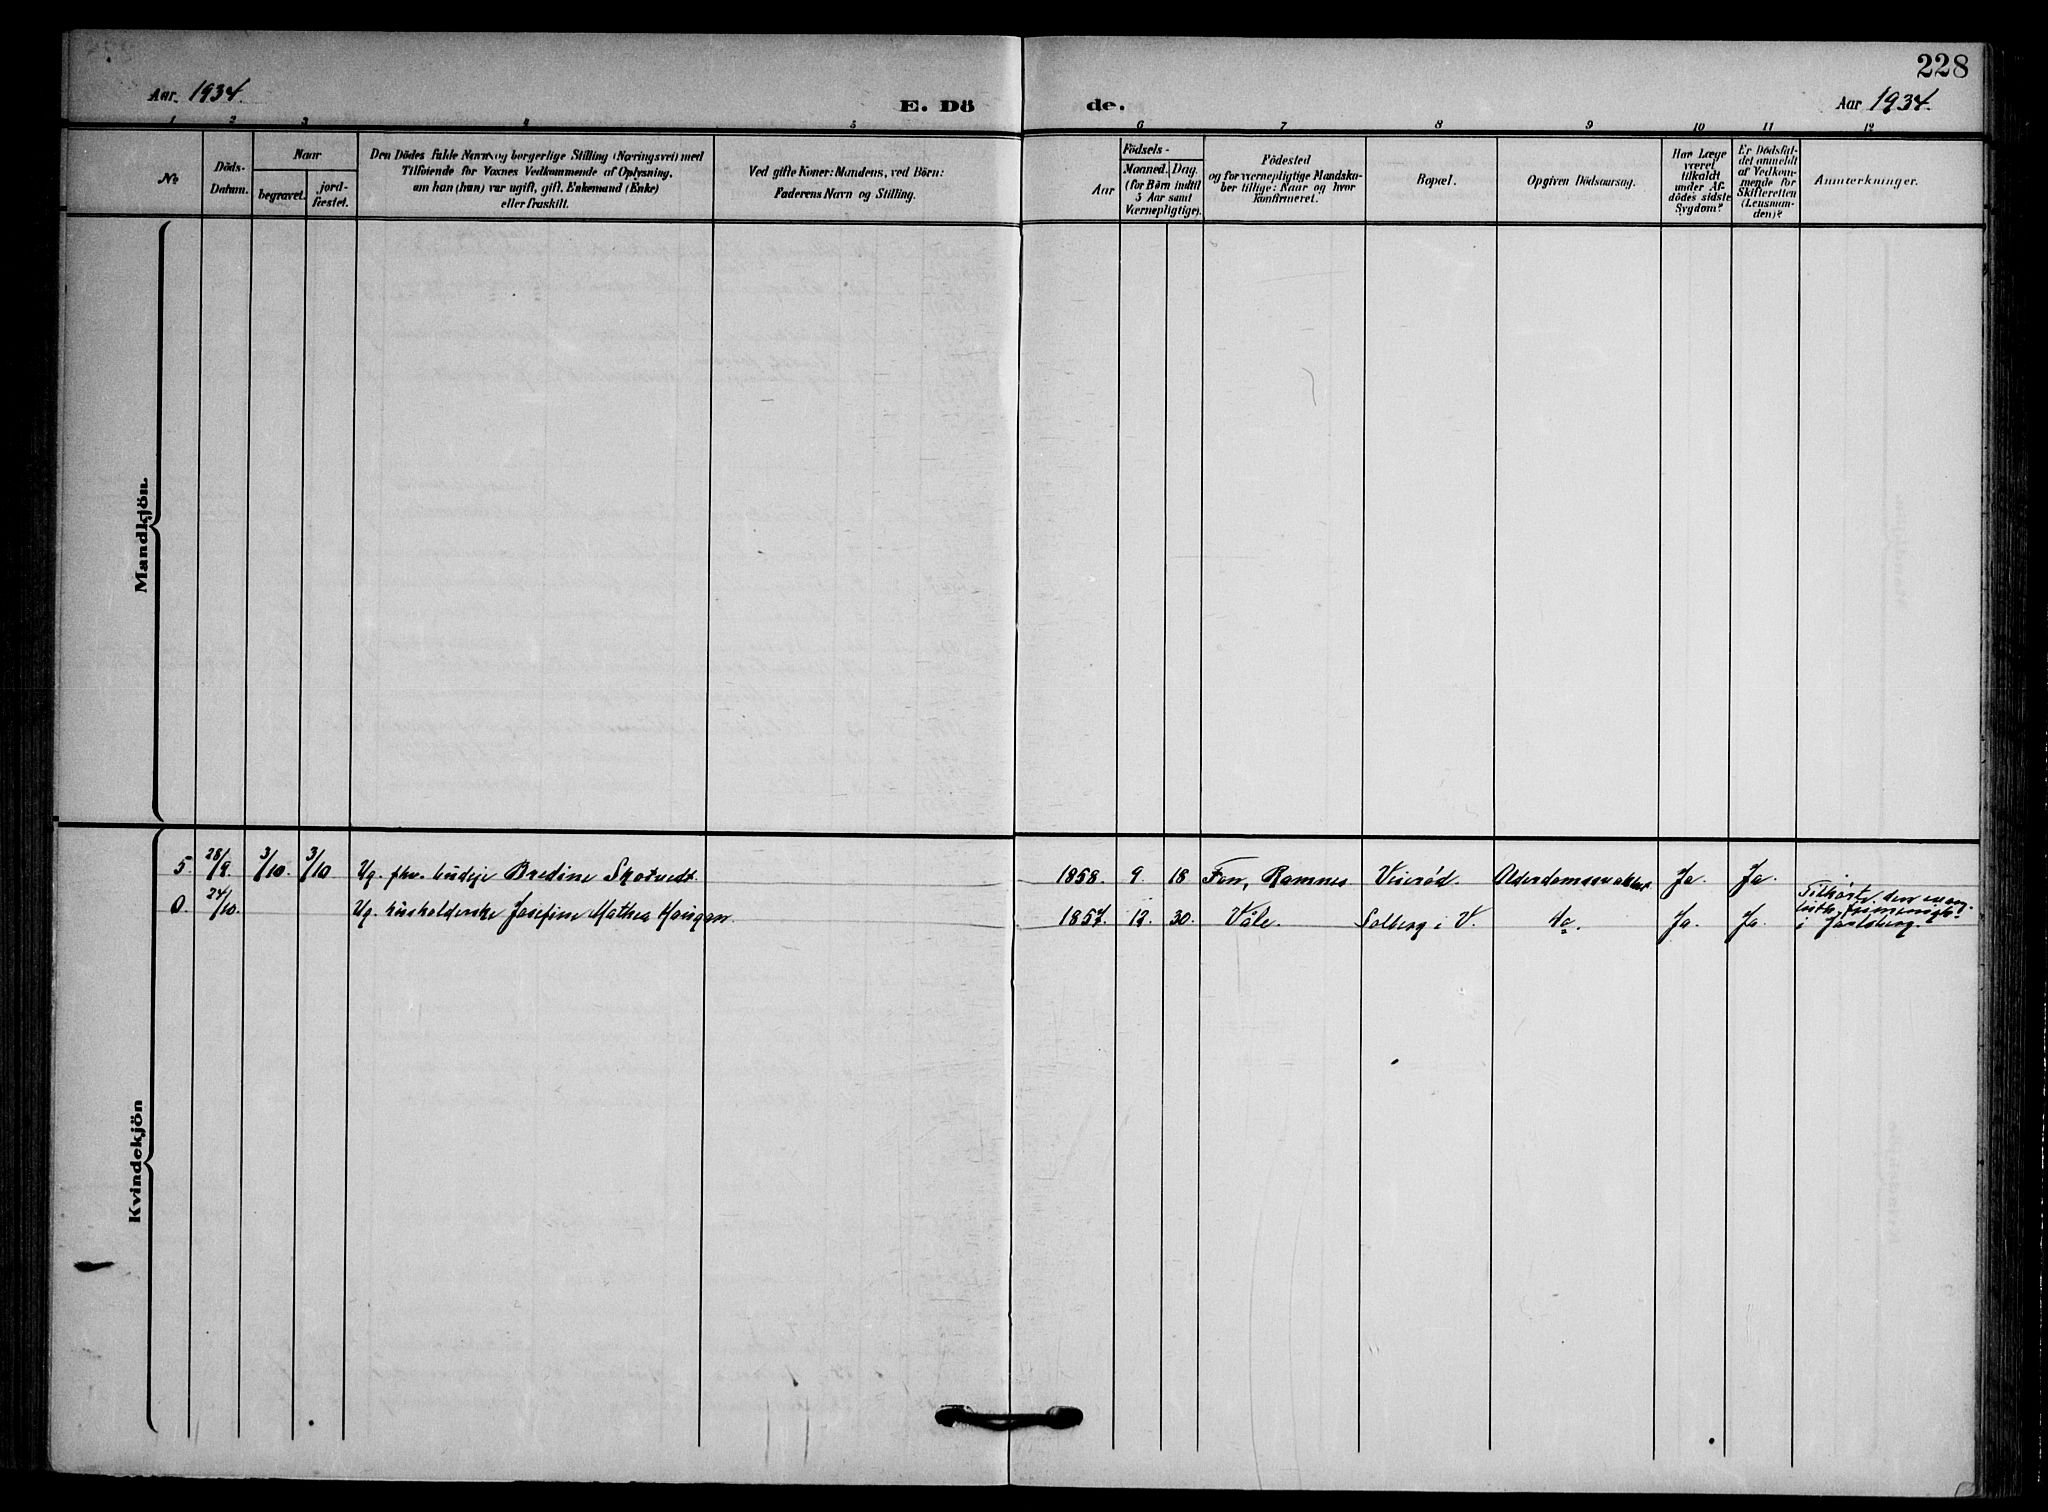 228
Aar 1934.
E. Dö
de.
Aar 1934.
1 2 3 4 5 6 7 8 9 10 11 12
No
Döds-
Datum.
Naar
begravet.
jord-
fæstet.
Den Dödes fulde Navn og borgerlige Stilling (Næringsvei) med
Tilföiende for Voxnes Vedkommende af Oplysning,
om han (hun) var ugift, gift, Enkemand (Enke)
eller fraskilt.
Ved gifte Koner: Mandens, ved Börn:
Faderens Navn og Stilling.
Födsels-
Aar
Maaned.
Dag.
(for Börn indtil
5 Aar samt
Værnepligtige).
Födested
og for værnepligtige Mandska-
ber tillige: Naar og hvor
konfirmeret.
Bopæl.
Opgiven Dödsaarsag.
Har Læge
været
tilkaldt
under Af-
dödes sidste
Sygdom?
Er Dödsfal-
det anmeldt
af Vedkom-
mende for
Skifteretten
(Lensman-
den)?
Anmærkninger.
Mandkjön.
Kvindekjön
5. 28/9. 3/10. 3/10 Ug. fhv. budeje Bredine Skotvedt. 1858. 9. 18 Fon, Ramnes Viserød. Alderdomssvakhet Ja. Ja.
0. 24/10. Ug. husholderske Josefine Mathea Haugan. 1857. 12. 30. Våle. Solberg i V. do. Ja. Ja.
Tilhørte den evang.
luth. frimenigh.
i Jarlsberg.